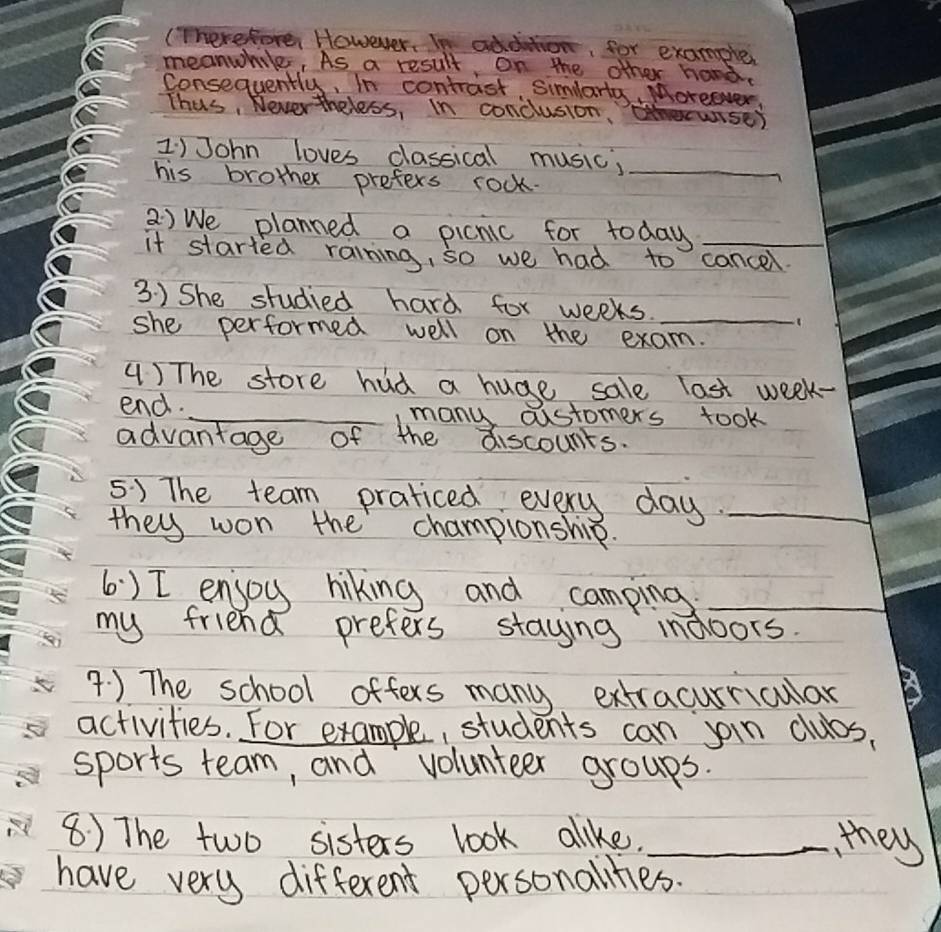 (Therefore, However, In addition, for example,
meanwhile, As a result, On the other hand,
Consequently, In contrast, Similarly, Moreover,
Thus, Nevertheless, In conclusion, Otherwise)
1.) John loves classical music; ________,
his brother prefers rock.
2.) We planned a picnic for today ________
it started raining, so we had to cancel.
3.) She studied hard for weeks. ________,
she performed well on the exam.
4.) The store had a huge sale last week-
end. ________, many customers took
advantage of the discounts.
5.) The team praticed every day. ________
they won the championship.
6.) I enjoy hiking and camping ________
my friend prefers staying indoors.
7.) The school offers many extracurricular
activities. For example, students can join clubs,
sports team, and volunteer groups.
8.) The two sisters look alike. ________, they
have very different personalities.